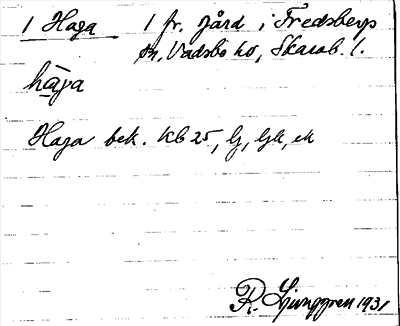 1 Haga 1 fr. gård i Fredsbergs
sn, Vadsbo hd, Skarab. l.
haga
Haga bek. KB 25, G, Gk, ek
R. Ljunggren 1931